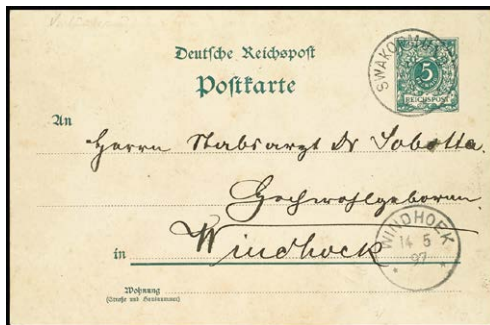 Deutsche Reichspost
Postkarte
SWAKOPMUND
5
REICHSPOST
An
Herrn Stabsarzt Dr Sobotta.
Hochwohlgeboren
in Windhoek
WINDHOEK
14 5
97
Wohnung
(Straße und Hausnummer)